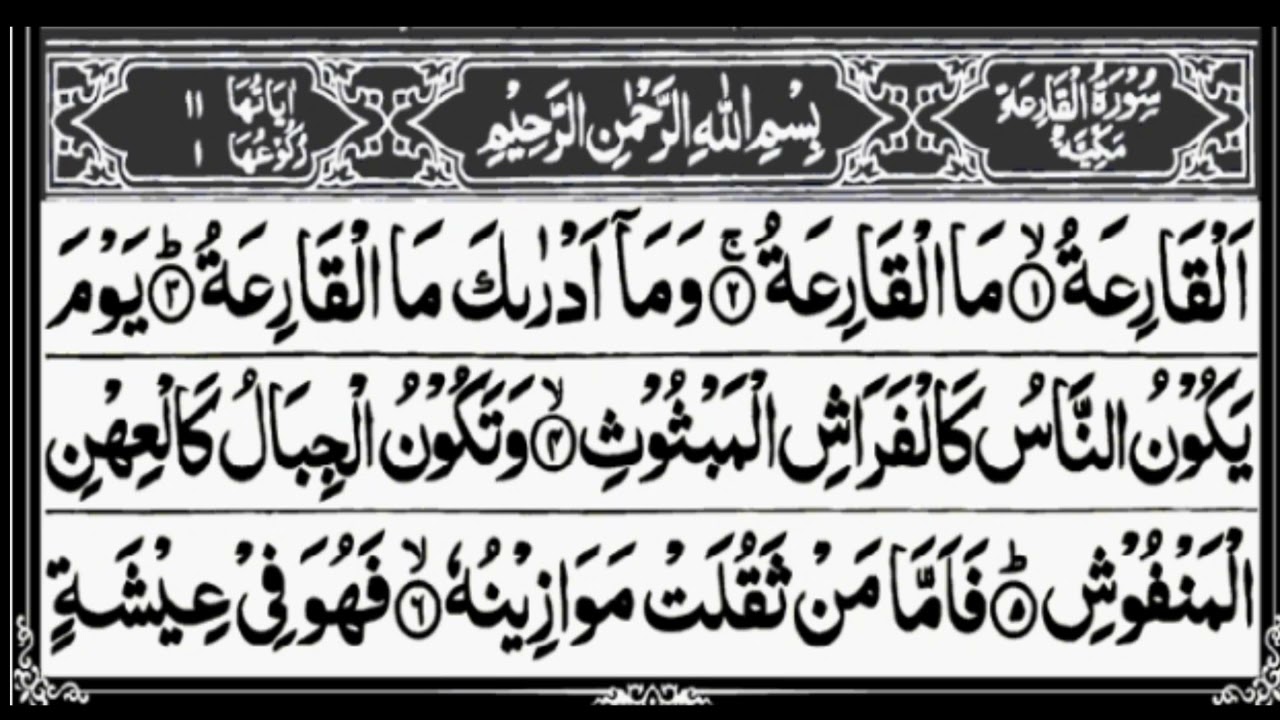 سُوْرَةُ الْقَارِعَةِ مَكِّيَّةٌ
بِسْمِ اللّٰهِ الرَّحْمٰنِ الرَّحِيْمِ
اٰيَاتُهَا ١١
رُكُوْعُهَا ١
اَلْقَارِعَةُ ۙ﴿١﴾ مَا الْقَارِعَةُ ۚ﴿٢﴾ وَمَاۤ اَدْرٰىكَ مَا الْقَارِعَةُ ؕ﴿٣﴾ يَوْمَ
يَكُوْنُ النَّاسُ كَالْفَرَاشِ الْمَبْثُوْثِ ۙ﴿۴﴾ وَتَكُوْنُ الْجِبَالُ كَالْعِهْنِ
الْمَنْفُوْشِ ؕ﴿۵﴾ فَاَمَّا مَنْ ثَقُلَتْ مَوَازِيْنُهٗ ۙ﴿٦﴾ فَهُوَ فِيْ عِيْشَةٍ